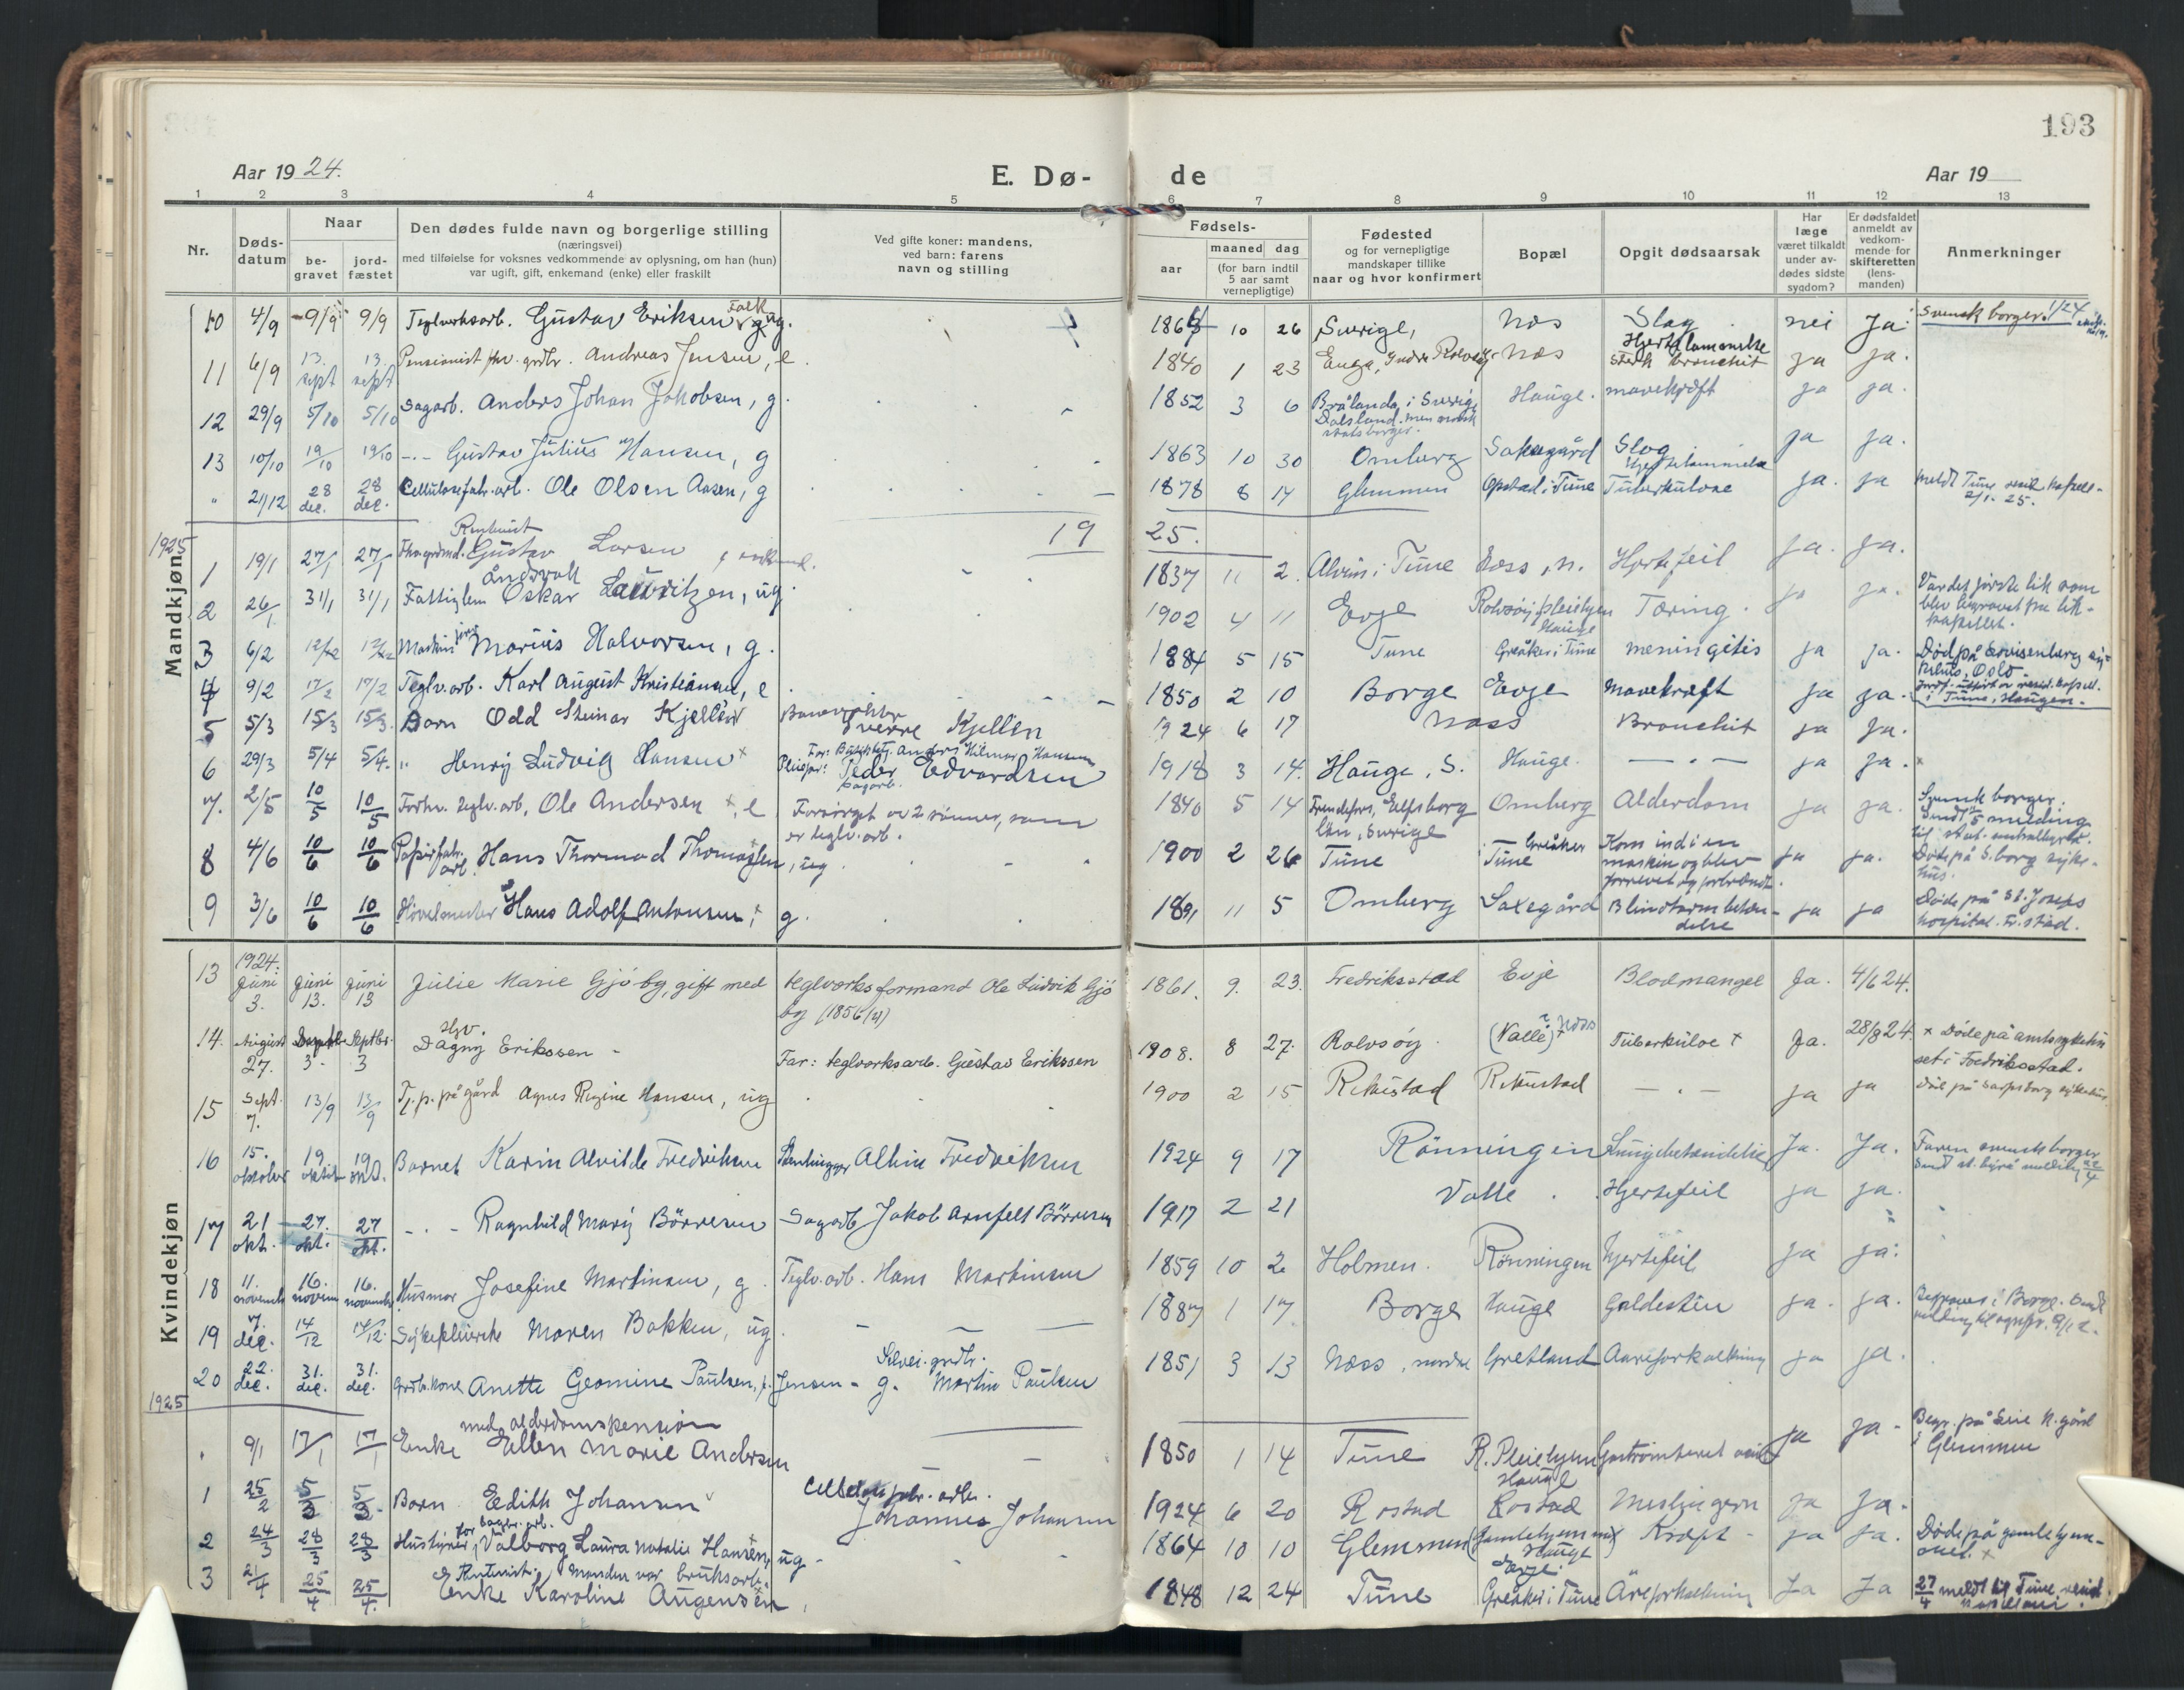 193
Aar 19 24.
E. Dø-
de
Aar 19
1 2 3 4 5 6 7 8 9 10 11 12 13
Nr.
Døds-
datum
Naar
be-
gravet
jord-
fæstet
Den dødes fulde navn og borgerlige stilling
(næringsvei)
med tilføielse for voksnes vedkommende av oplysning, om han (hun)
var ugift, gift, enkemand (enke) eller fraskilt
Ved gifte koner: mandens,
ved barn: farens
navn og stilling
Fødsels-
aar
maaned dag
(for barn indtil
5 aar samt
vernepligtige)
Fødested
og for vernepligtige
mandskaper tillike
naar og hvor konfirmert
Bopæl
Opgit dødsaarsak
Har
læge
været tilkaldt
under av-
dødes sidste
sygdom?
Er dødsfaldet
anmeldt av
vedkom-
mende for
skifteretten
(lens-
manden)
Anmerkninger
Mandkjøn
10 4/9 9/9 9/9 Teglverksarb. Gustav Eriksen Falk ug. 1864 10 26 Sverige, Næs Slag nei Ja. Svensk borger.
Hjertelammelse
11 6/9 13. sept 13. sept Pensionist Andreas Jensen, e. 1840 1 23 Enga, Indre Rolvsøy Næs sterk bronchit ja ja.
12 29/9 5/10 5/10 Sagarb. Anders Johan Jakobsen, g. 1852 3 6 Brålanda i Sverige Hauge. mavekræft ja ja.
Dalsland. men norsk
statsborger.
13 10/10 19/10 19/10 -.- Gustav Julius Hansen, g 1863 10 30 Omberg Saksegård Slag ja ja.
Hjertelammelse
" 21/12 28 dec. 28 dec. Cellulosefabr.arb. Ole Olsen Aasen, g 1878 8 14 Glemmen Opstad i Tune Tuberkulose ja. ja meldt Tune
2/1. 25.
1925
19 25.
Rentenist
1 19/1 27/1 27/1 Gustav Larsen, enkemand. 1837 11 2. Alvim i Tune Næss, n. Hjertefeil ja. ja.
Åndsvak
2 26/1 31/1 31/1 Fattiglem Oskar Lauritzen, ug. 1902 4 11 Evje Rolvsøy pleiehjem Tæring. ja ja. Var det første lik som
Hauge blev begravet fra lik-
kapellet.
3 6/2 12/2 12/2 Marius Halvorsen, g. 1884 5 15 Tune Greåker i Tune meningitis ja ja. Død på Lovisenberg sy-
kehus, Oslo.
4 9/2 17/2 17/2 Teglv.arb. Karl August Kristiansen, e 1850 2 10 Borge Evje Mavekræft ja ja.
i Tune, Haugen.
5 5/3 15/3 15/3. Barn Odd Steinar Kjellén Sverre Kjellén 1924 6 17 Næss Bronchit ja ja.
Far: Anders Hilmar Hansen
6 29/3 5/4 5/4. " Henry Ludvig Hansen x Pleiefar: Peder Edvardsen 1918 3 14. Hauge, S. Hauge. -.- ja ja.
Sagarb.
7. 2/5 10/5 10/5 Forhv. teglv.arb. Ole Andersen x, e Forsørget av 2 sønner, som 1840 5 14 Elfsborg Omberg Alderdom ja ja. Svensk borger.
er teglv.arb. län, Sverige Sendt melding
8 4/6 10/6 10/6 Papirfabr. arb. Hans Thormod Thomassen, ug 1900 2 26 Tune Greåker Tune Kom ind i en ja ja. Døde på S.borg syke-
maskin og blev hus.
9 3/6 10/6 10/6 Høvelmester Hans Adolf Antonsen, x g. 1891 11 5 Omberg Saxegård Blindtarmbeten- ja ja Døde på St. Josephs
delse hospital. Fr.stad.
Kvindekjøn
1924.
13 juni 3. juni 13. juni 13 Julie Marie Gjøby, gift med teglverksformand Ole Ludvik Gjø 1861. 9. 23. Fredriksstad Evje Blodmangel Ja. 4/6 24.
by (1856/ )
14. August 27. Septbr. 3. Septbr. 3 Dagny Erikssen - Far: teglverksarb. Gustav Erikssen 1908. 8 27. Rolvsøy. (Valle) Næss Tuberkulose x Ja. 28/8 24. x Døde på amtssykehu
set i Fredriksstad.
15 Sept. 7. 13/9 13/9 T.j.p. på gård Agnes Regine Hansen, ug 1900 2 15 Rekustad Rekustad -.- ja ja Død på Sarpsborg sykehus.
16 15. oktober 19 oktbr 19 okt. Barnet Karin Alvilde Fredriksen Stenhugger Albin Fredriksen 1924 9 17 Rønningen Lungebetændelse Ja. Ja. Faren svensk borger
17 21 okt. 27. okt. 27 okt. -.- Ragnhild Mary Børresen Sagarb Jakob Arnfelt Børresen 1917 2 21 Valle. Hjertefeil ja ja.
18 11. novemb 16. novem 16. november Husmor Josefine Martinsen, g. Teglv.arb. Hans Martinsen 1859 10 2 Holmen. Rønningen Hjertefeil ja ja.
19 7. dec. 14/12 14/12. Sykepleierske Maren Bakken, ug. 1887 1 17 Borge Hauge Galdesten ja. ja. Begraves i Borge.
20 22. dec. 31. dec. 31. dec. Grdb.kone Anette Geomine Paulsen, f. Jensen - g. Martin Paulsen 1851 3 13 Næss, nordre Gretland Aareforkalkning ja ja.
1925
med alderdomspension
. 9/1 17/1 17/1 Enke Ellen Marie Andersen 1850 1 14 Tune R. Pleiehjem Hauge ja ja. Begr. på Leie k.gård
i Glemmen
1 25/2 5/3 5/3. Barn Edith Johansen Johannes Johansen 1924 6 20 Rostad Rostad Meslingern ja ja.
2 24/3 28/3 28/3 Valborg Laura Natalie Hansen, ug. 1864 10 10 Glemmen (Gamlehjemmet Hauge) Kræft - ja ja. Døde på gamlehjem-
met. x
Rentenist. Manden var bruksarb.
3 21/4 25/4 25/4. Enke Karoline Augensen, 1848 12 24 Tune Greåker i Tune Åreforkalkning Ja Ja 27/4 meldt til Tune resid.